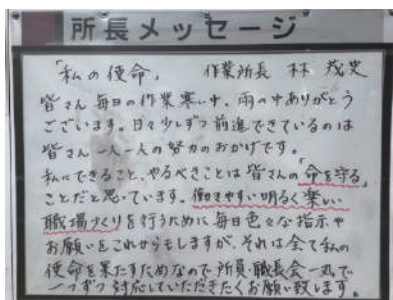 所長メッセージ
「私の使命」 作業所長 林 茂史
皆さん毎日の作業寒い中、雨の中ありがとう
ございます。日々少しずつ前進できているのは
皆さん一人一人の努力のおかげです。
私にできること、やるべきことは皆さんの「命を守る」
ことだと思っています。働きやすい明るく楽しい
職場づくりを行うために毎日色々な指示や
お願いをこれからもしますが、それは全て私の
使命を果たすためなので所員・職長会一丸で
一つずつ対応していただきたくお願い致します。